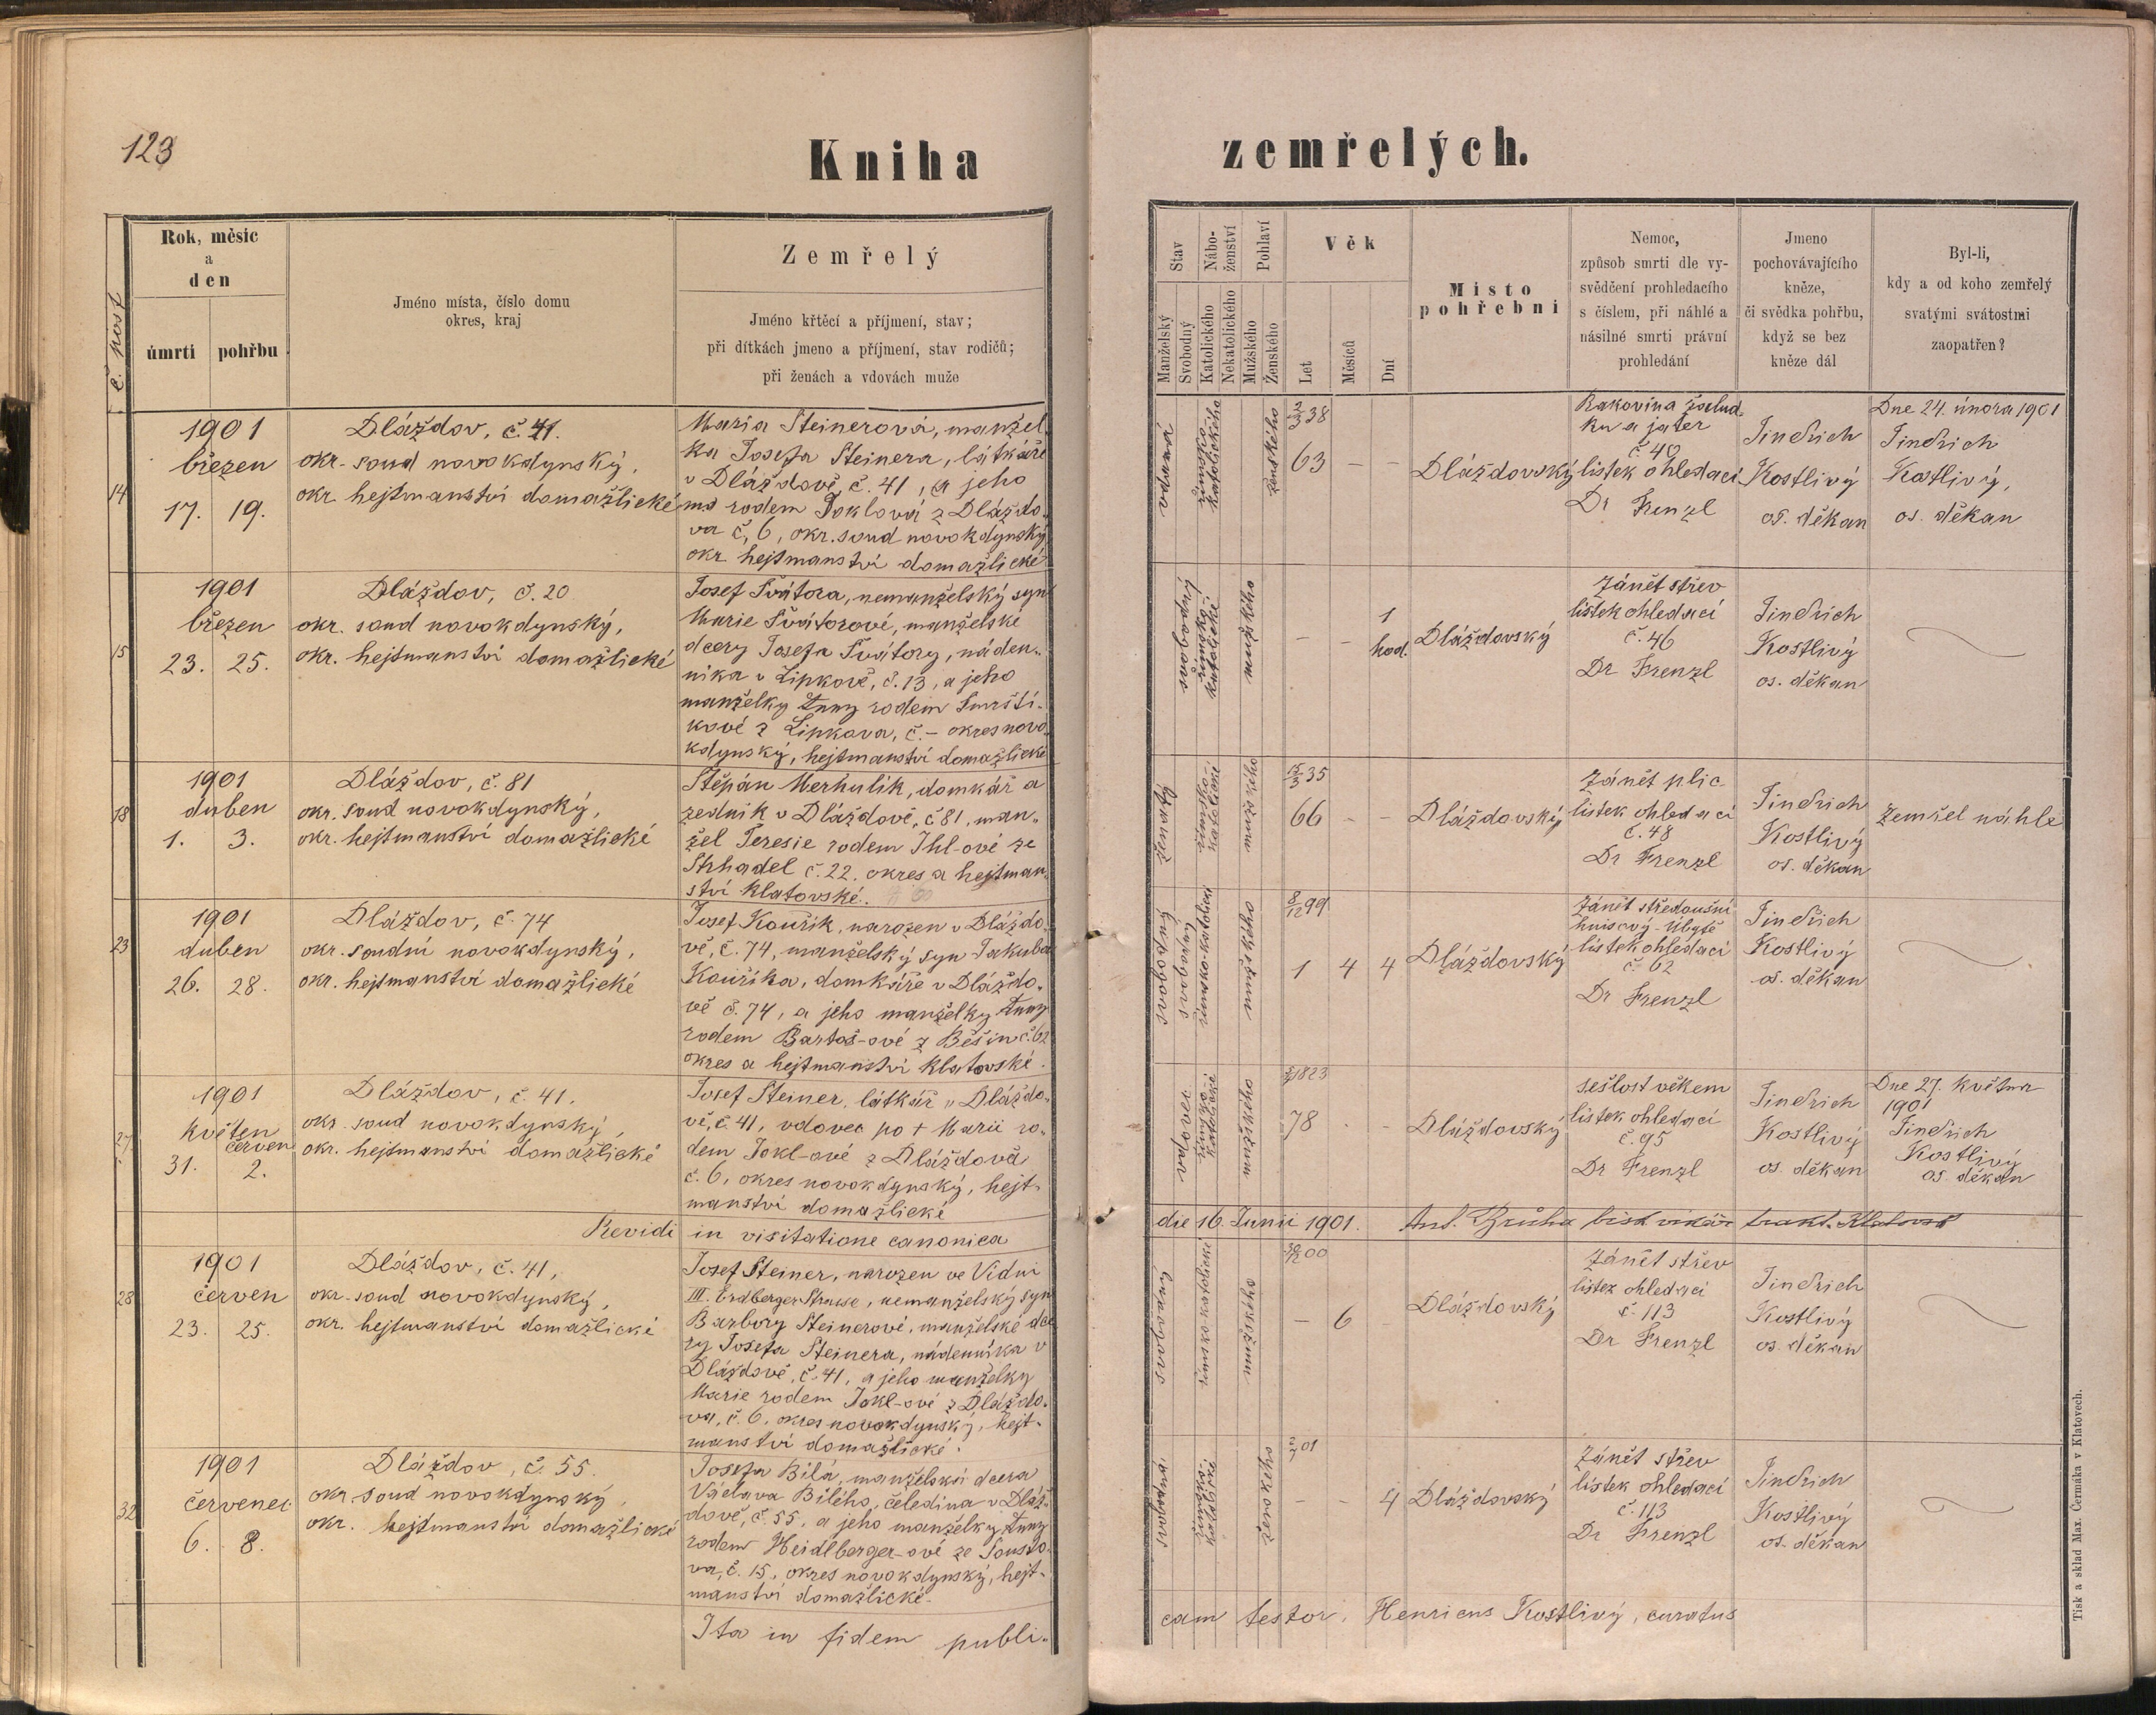 123
Kniha zemřelých.
č. post
Rok, měsíc
a
den
úmrtí
pohřbu
Jméno místa, číslo domu
okres, kraj
Zemřelý
Jméno křtěcí a příjmení, stav;
při dítkách jmeno a příjmení, stav rodičů;
při ženách a vdovách muže
Stav
Manželský
Svobodný
Nábo-
ženství
Katolického
Nekatolického
Pohlaví
Mužského
Ženského
Věk
Let
Měsíců
Dní
Místo
pohřební
Nemoc,
způsob smrti dle vy-
svědčení prohledacího
s číslem, při náhlé a
násilné smrti právní
prohledání
Jmeno
pochovávajícího
kněze,
či svědka pohřbu,
když se bez
kněze dál
Byl-li,
kdy a od koho zemřelý
svatými svátostmi
zaopatřen?
14
1901
březen
17. 19.
Dláždov, č. 41.
okr. soud novokdynský,
okr. hejtmanství domažlické
Maria Steinerová, manžel
ka Josefa Steinera, látkáře
v Dláždově, č. 41, a jeho
rodem Joklová z Dláždo-
va č. 6, okr. soud novokdynský
okr. hejtmanství domažlické
vdaná
římsko-
katolického
ženského
2/3 38
63 – –
Dláždovský
Rakovina žalud-
ku a jater
č 40
lístek ohledací
Dr Frenzl
Jindřich
Kostlivý
os. děkan
Dne 24. února 1901
Jindřich
Kostlivý,
os. děkan
15
1901
březen
23. 25.
Dláždov, č. 20
okr. soud novokdynský,
okr. hejtmanství domažlické
Josef Švátora, nemanželský syn
Marie Švátorové, manželské
dcery Josefa Švátory, náden-
níka v Lipkově, č. 13, a jeho
manželky Anny rodem Smrští-
kové z Lipkova, č. – okres novo
kdynský, hejtmanství domažlické
svobodný
římsko-
katolické
mužského
– – 1
hod.
Dláždovský
Zánět střev
lístek ohledací
č. 46
Dr Frenzl
Jindřich
Kostlivý
os. děkan
18
1901
duben
1. 3.
Dláždov, č. 81
okr. soud novokdynský,
okr. hejtmanství domažlické
Štěpán Merhulík, domkář a
zedník v Dláždově, č 81, man-
žel Teresie rodem Ihl-ové ze
Strhadel č. 22. okres a hejtman-
ství klatovské.
ženatý
římsko-
katolické
mužského
15/3 35
66 – –
Dláždovský
Zánět plic
lístek ohledací
č. 48
Dr Frenzl
Jindřich
Kostlivý
os. děkan
Zemřel náhle
23
1901
duben
26. 28.
Dláždov, č. 74
okr. soudní novokdynský,
okr. hejtmanství domažlické
Josef Kouřík, narozen v Dláždo
vě, č. 74, manželský syn Jakuba
Kouříka, domkáře v Dláždo-
vě č. 74, a jeho manželky Anny
rodem Bartoš-ové z Běšin č. 62
okres a hejtmanství klatovské.
svobodný
svobodný
římsko-katolické
mužského
8/12 99
1 4 4
Dláždovský
Zánět středoušní
hnisavý - Úbytě
lístek ohledací
č. 62
Dr Frenzl
Jindřich
Kostlivý
os. děkan
27
1901
květen
červen
31. 2.
Dláždov, č. 41.
okr. soud novokdynský,
okr. hejtmanství domažlické
Josef Steiner, látkář v Dláždo-
vě, č. 41, vdovec po + Marii ro-
dem Jokl-ové z Dláždova
č. 6, okres novokdynský, hejt-
manství domažlické
vdovec
římsko-
katolické
mužského
1823
78 – –
Dláždovský
sešlost věkem
lístek ohledací
č. 95
Dr Frenzl
Jindřich
Kostlivý
os. děkan
Dne 27. května
1901
Jindřich
Kostlivý
os. děkan
Revidi in visitatione canonica die 16. Junii 1901. Ant. Brůha bisk vikář
28
1901
červen
23. 25.
Dláždov, č. 41,
okr. soud novokdynský,
okr. hejtmanství domažlické
Josef Steiner, narozen ve Vídni
III. Erdberger Strasse, nemanželský syn
Barbory Steinerové, manželské dce
ry Josefa Steinera, nádenníka v
Dláždově, č. 41, a jeho manželky
Marie rodem Jokl-ové z Dláždo-
va, č. 6, okres novokdynský, hejt-
manství domažlické.
svobodný
římsko-katolické
mužského
30/12 00
– 6 –
Dláždovský
Zánět střev
lístek ohledací
č. 113
Dr Frenzl
Jindřich
Kostlivý
os. děkan
32
1901
červenec
6. 8.
Dláždov, č. 55.
okr. soud novokdynský,
okr. hejtmanství domažlické
Josefa Bílá, manželská dcera
Václava Bílého, čeledína v Dláž-
dově, č. 55, a jeho manželky Anny
rodem Heidlberger-ové ze Smržo-
va, č. 15., okres novokdynský, hejt-
manství domažlické.
svobodná
římsko-
katolické
ženského
2/7 01
– – 4
Dláždovský
Zánět střev
lístek ohledací
č. 113
Dr Frenzl
Jindřich
Kostlivý
os. děkan
Ita in fidem publi-
cam testor. Henricus Kostlivý, curatus
Tisk a sklad Max. Čermáka v Klatovech.